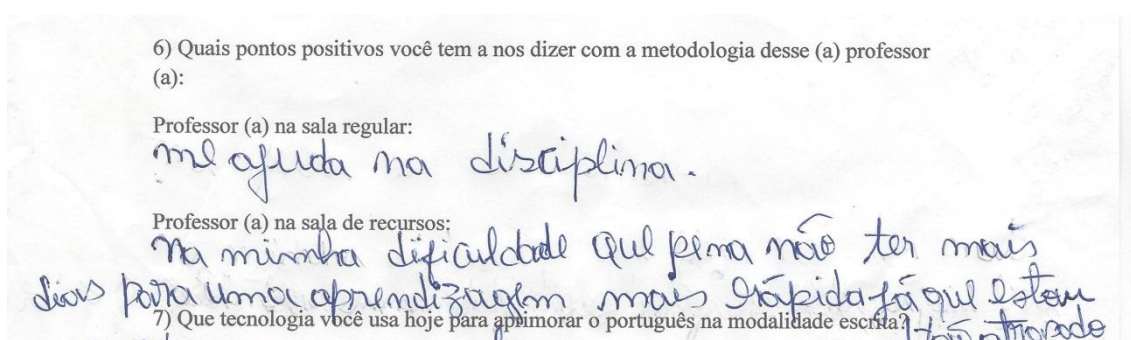 6) Quais pontos positivos você tem a nos dizer com a metodologia desse (a) professor
(a):
Professor (a) na sala regular:
me ajuda na disciplina.
Professor (a) na sala de recursos:
Na minha dificuldade que pena não ter mais
dias para uma aprendizagem mais rápida já que estou
7) Que tecnologia você usa hoje para aprimorar o português na modalidade escrita?
tão atrasado